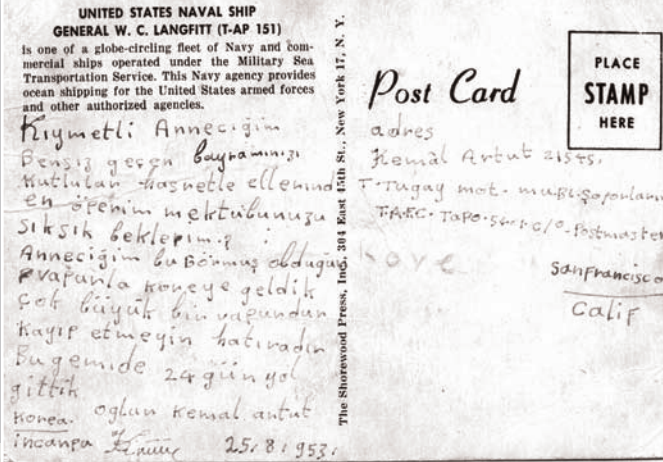 UNITED STATES NAVAL SHIP
GENERAL W. C. LANGFITT (T-AP 151)
is one of a globe-circling fleet of Navy and com-
mercial ships operated under the Military Sea
Transportation Service. This Navy agency provides
ocean shipping for the United States armed forces
and other authorized agencies.
Kıymetli Anneciğim
Bensiz geçen bayramınızı
Kutlular hasretle ellerind
en öperim mektubunuzu
sıksık beklerim.
Anneciğim bu Görmüş olduğun
vapurla koreye geldik
çok büyük bir vapurdur
Kayıp etmeyin hatıradır
Bu gemide 24 gün yol
gittik
Korea. oğlun Kemal artut
incanpa 25.8.953.
The Shorewood Press, Inc., 304 East 45th St., New York 17, N. Y.
Post Card
PLACE
STAMP
HERE
adres
Kemâl Artut 21545.
T. Tugay mot.
T.A.F.C. c/o Postmaster
Kore
Sanfrancisco
Calif